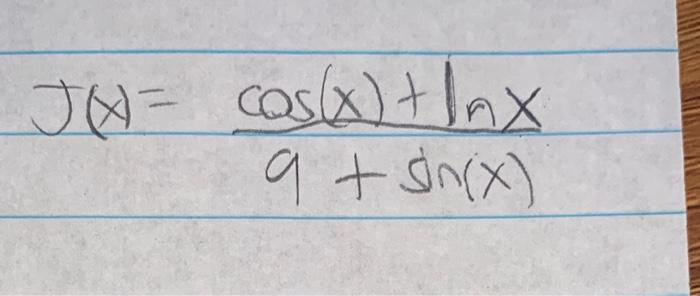 J(x) = cos(x) + ln x
9 + sin(x)